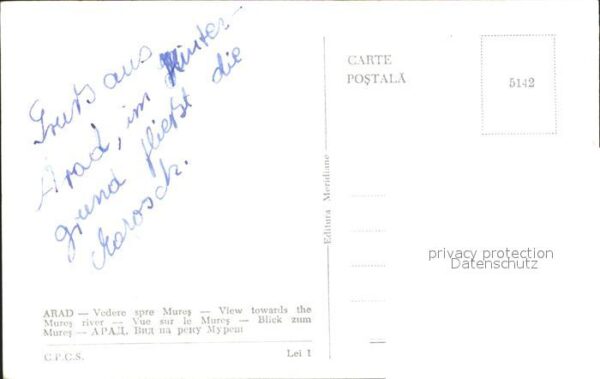 Gruß aus
Arad, im Hinter-
grund fließt die
Marosch.
CARTE
POȘTALĂ
5142
Editura Meridiane
privacy protection
Datenschutz
ARAD — Vedere spre Mureș — View towards the
Mureș river — Vue sur le Mureș — Blick zum
Mureș — АРАД. Вид на реку Муреш
C.P.C.S.
Lei 1